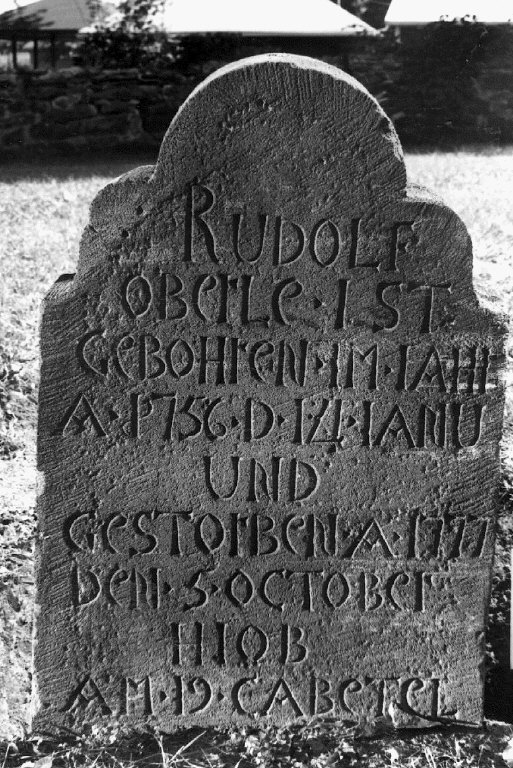 RUDOLF
OBerLe · IST
GeBOHreN · IM · IAHr
A · 1756 · D · 14 · IANU
UND
GeSTOrBeN · A · 1777
DeN · 5 · OCTOBer
HIOB
AM · 19 · CABeTeL